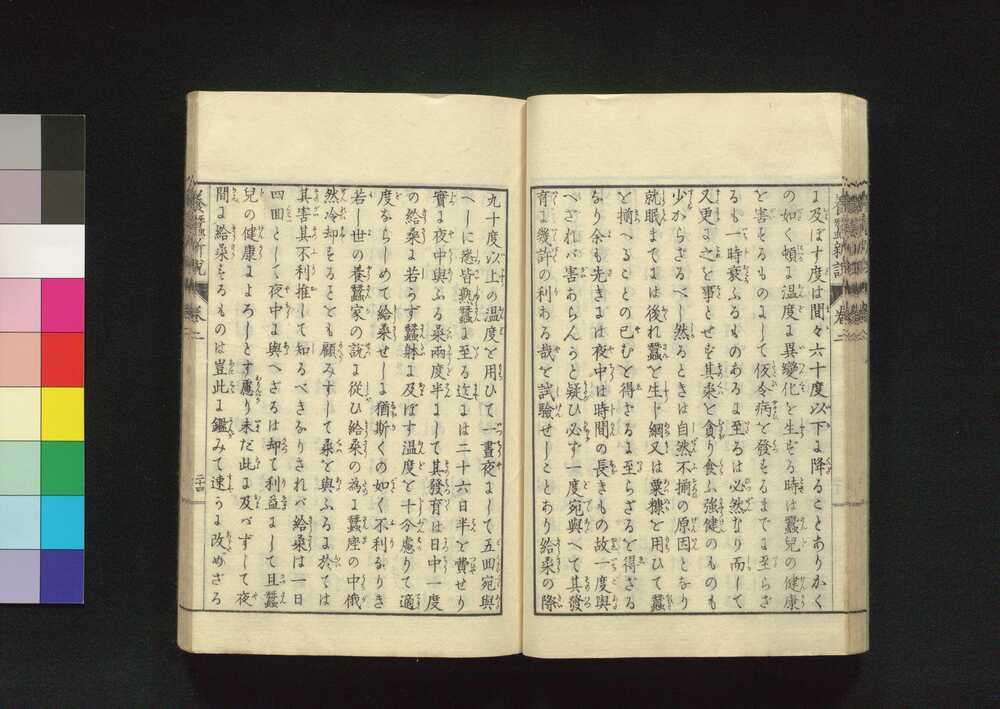 に及ぼす度は間々六十度以下に降ることありかく
の如く頓に温度に異變化を生ずる時は蠶兒の健康
を害するものにして仮令病を發するまでに至らざ
るも一時衰ふるものあるに至るは必然なり而して
又更に之を事とせず其桒を貪り食ふ強健のものも
少からざるべし然るときは自然不揃の原因となり
就眠までには後れ蠶を生じ網又は粟糠を用ひて蠶
を揃へることの已むを得ざるに至らざるを得ざる
なり余も先きには夜中は時間の長きもの故一度與
へざれバ害あらんかと疑ひ必ず一度宛與へて其發
育に幾許の利ある哉を試驗せしことあり給桒の際
九十度以上の温度を用ひて一晝夜にして五回宛與
へしに悉皆熟蠶に至る迄には二十六日半を費せり
實に夜中與ふる桒兩度半にして其發育は日中一度
の給桒に若かず蠶躰に及ぼす温度を十分慮りて適
度ならしめて給桒せしに猶斯くの如く不利なりき
若し世の養蠶家の説に從ひ給桒の為に蠶座の中俄
然冷却をるをも顧みずして桒を與ふるに於ては
其害其不利推して知るべきなりされバ給桒は一日
四回として夜中に與へざるは却て利益にして且蠶
兒の健康によろしとす慮り未だ此に及バずして夜
間に給桒するものは豈此に鑑みて速かに改めざる
養蠶新説
卷二
二十四
養蠶新説
卷二